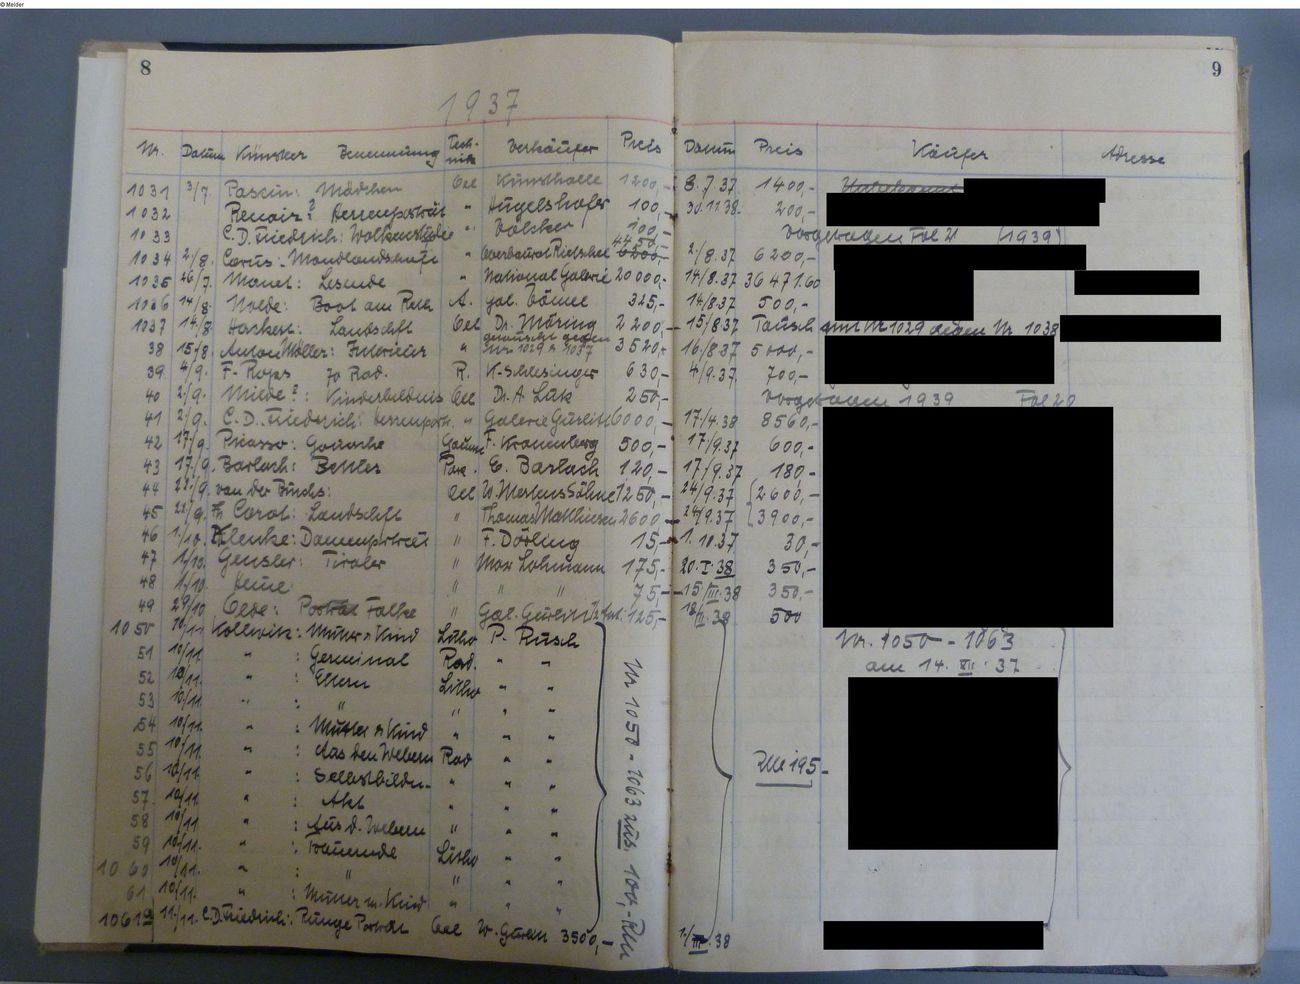 © Melder
8
9
1937
Nr. Datum Künstler Benennung Tech-nik Verkäufer Preis Datum Preis Käufer Adresse
1031 3/7. Pascin: Mädchen Oel Kunsthalle 1200,- 8.7.37 1400,-
1032 Renoir?: Herrenporträt " Hugelshofer 100,- 30.11.38. 200,-
1033 C.D. Friedrich: Wolkenstudie " Völcker 100,- Vorgetragen Fol 21 (1939)
1034 2/8. Corus: Mondlandschaft " Oberbaurat Rietschel 4450,- 6200,- 2/8.37 6200,-
1035 26/7. Monet: Lesende " National Galerie 20000,- 14/8.37 36471.60
1036 14/8. Nolde: Boot am Reth A. gal. Bömer 325,- 14/8.37 500,-
1037 14./8. Hackert: Landschft Oel Dr. Müring 2200,- 15/8.37 Tausch mit Nr 1029 gegen Nr. 1038
38 15/8. Anton Möller: Interieur " getauscht gegen Nr. 1029 & 1037 3520,- 16/8.37 5000,-
39. 4/9. F. Rops 70 Rad. R. K. Schlesinger 630,- 4/9.37. 700,-
40 2/9. Milde?: Kinderbildnis Oel Dr. A. Luk 250,- Vorgetragen 1939 Fol 20
41 2/9. C.D. Friedrich: Herrenportr. " Galerie Gurlitt 6000,- 17./4.38 8560,-
42 17/9. Picasso: Gouache Gouache F. Kronenberg 500,- 17/9.37 600,-
43 17/9. Barlach: Bettler E. Barlach 120,- 17/9.37 180,-
44 22/9. van der Burchs: Oel W. Mertens Söhne 1250,- 24/9.37 2600,-
45 22/9. Corot: Landschft " Thomas Matthiesen 2600,- 24/9.37 3900,-
46 1./10. Klenke: Damenporträt " F. Dörling 15,- 1.10.37 30,-
47 1/10. Gensler: Tiroler " Max Lohmann 175,- 20.I.38 350,-
48 1/10 Heine " " " 75,- 15/III.38 350,-
49 29/10 Oede: Porträt Falke " Gal. Gurlitt 1/2 Ant.: 125,- 18/II.38 500
1050 10/11 Kollwitz: Mutter & Kind Litho P. Rusch Nr. 1050 - 1063
51 10/11. " : Germinal Rad. " " am 14. XII. 37
52 10/11. " : Eltern Litho " "
53 10/11. " : " " " "
54 10/11. " : Mutter & Kind " " "
55 10/11. " : Aus den Webern Rad " " RM 195-
56 10/11. " : Selbstbildn. " " "
57. 10/11. " : Akt " " "
58 10/11. " : Aus d. Webern " " "
59 10/11. " : Trauernde Litho " "
1060 10/11. " : " " " "
61 10/11. " : Mutter m. Kind " " "
Nr 1050 - 1063 zus. 100,- RM
1061a 11./11. C.D. Friedrich: Runge Porträt Oel W. Gurlitt 3500,- 1./III.38